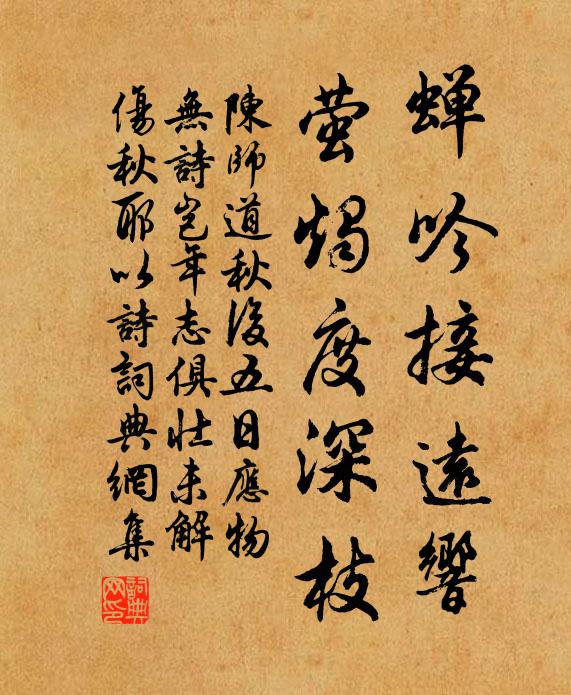 蝉吟接遠響
萤燭度深枝
陳師道秋後五日應物
無詩豈年志俱壯未解
傷秋耶以詩詞典網集
詞典网印